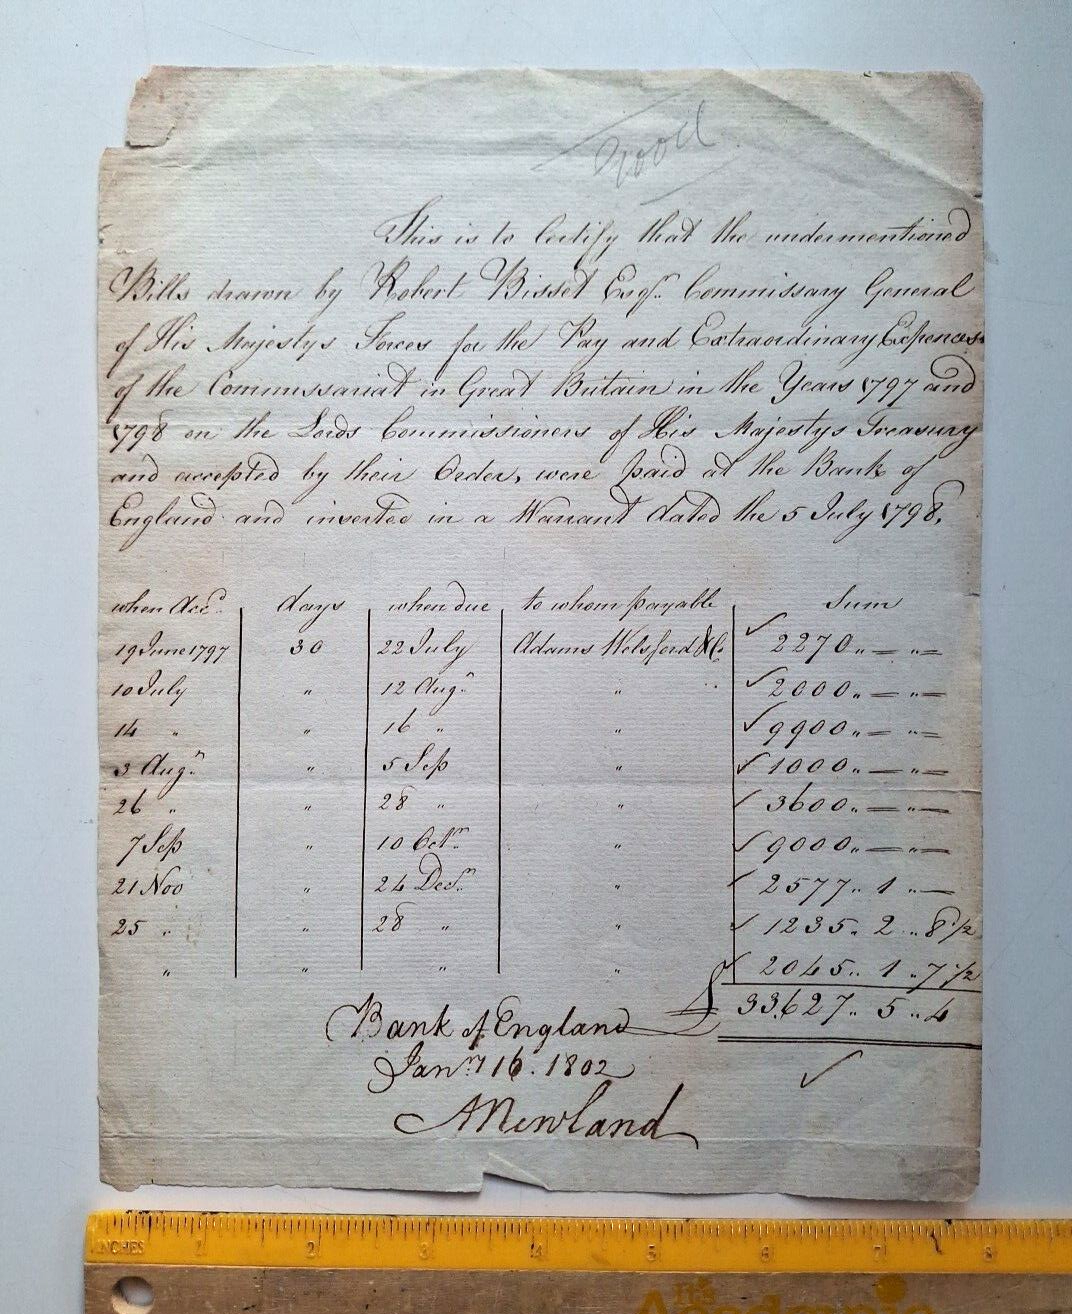 Good
This is to Certify that the undermentioned
Bills drawn by Robert Bisset Esqr. Commissary General
of His Majestys Forces for the Pay and Extraordinary Expences
of the Commissariat in Great Britain in the Years 1797 and
1798 on the Lords Commissioners of His Majestys Treasury
and accepted by their Order, were paid at the Bank of
England and inserted in a Warrant dated the 5 July 1798,
when Accd. days when due to whom payable Sum
19 June 1797 30 22 July Adams Welsford & Co ✓ 2270 „ = „ =
10 July „ 12 Augt. „ ✓ 2000 „ = „ =
14 „ „ 16 „ „ ✓ 9900 „ = „ =
3 Augt. „ 5 Sep „ ✓ 1000 „ = „ =
26 „ „ 28 „ „ ✓ 3600 „ = „ =
7 Sep „ 10 Octr. „ ✓ 9000 „ = „ =
21 Nov „ 24 Decr. „ ✓ 2577 „ 1 „ —
25 „ „ 28 „ „ ✓ 1235 „ 2 „ 8 1/2
„ „ „ „ ✓ 2045 „ 1 „ 7 1/2
£ 33,627 „ 5 „ 4
Bank of England
Jany 16. 1802 ✓
A Newland
INCHES 1 2 3 4 5 6 7 8
It's
Academic